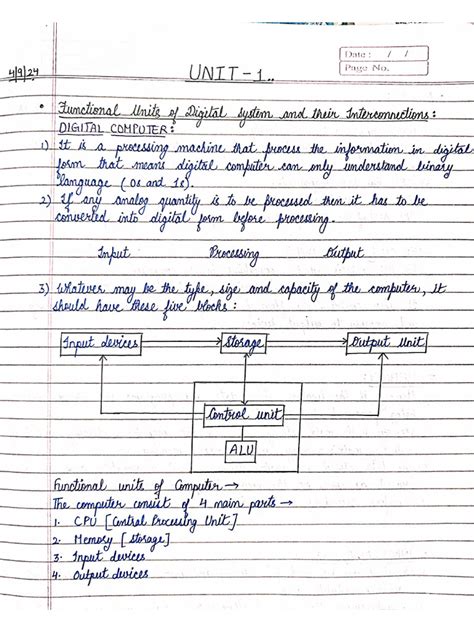 Date : / /
Page No.
4/9/24
UNIT - 1..
• Functional Units of Digital System and their Interconnections :
DIGITAL COMPUTER :
1) It is a processing machine that process the information in digital
form that means digital computer can only understand binary
language ( 0s and 1s).
2) If any analog quantity is to be processed then it has to be
converted into digital form before processing.
Input Processing Output
3) Whatever may be the type, size and capacity of the computer, It
should have these five blocks :
Input devices Storage Output Unit
Control unit
ALU
Functional units of Computer →
The computer consist of 4 main parts →
1. CPU [Central Processing Unit]
2. Memory [storage]
3. Input devices
4. Output devices